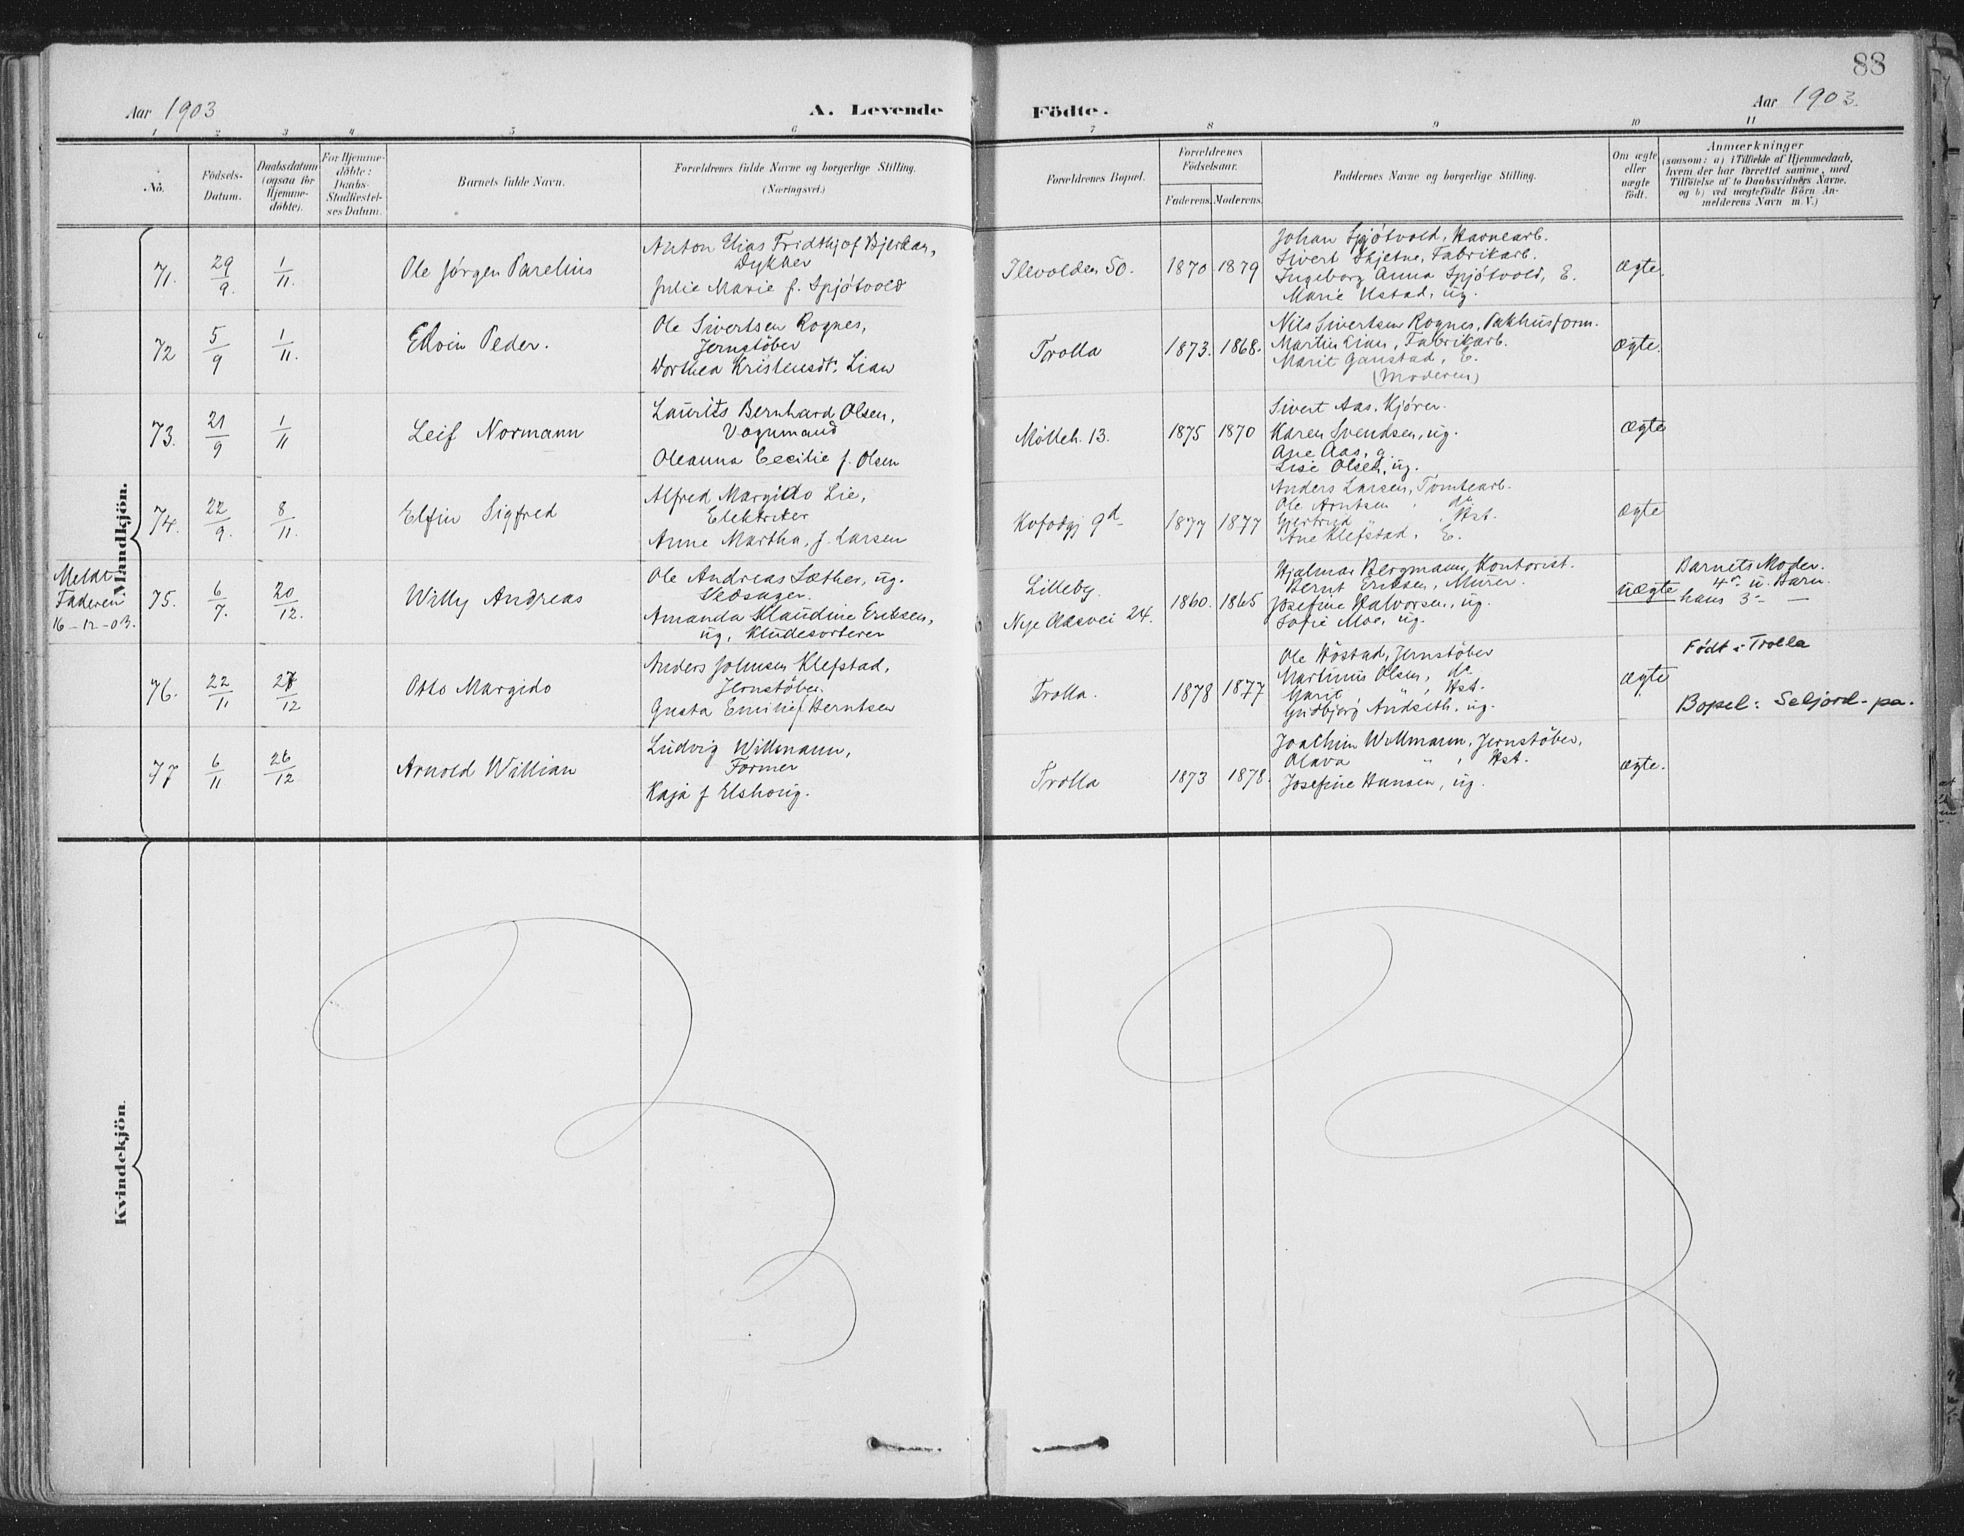 Aar 1903
A. Levende
Födte.
Aar 1903.
88
1 2 3 4 5 6 7 8 9 10 11
No.
Födsels-Datum.
Daabsdatum (ogsaa for Hjemme-döbte).
For Hjemme-döbte: Daabs-Stadfæstel-ses Datum.
Barnets fulde Navn.
Forældrenes fulde Navne og borgerlige Stilling.
(Næringsvei.)
Forældrenes Bopæl.
Forældrenes Födselsaar.
Faderens. Moderens.
Faddernes Navne og borgerlige Stilling.
Om ægte eller uægte födt.
Anmærkninger
(saasom: a) i Tilfælde af Hjemmedaab, hvem der har forrettet samme, med Tilföielse af to Daabsvidners Navne, og b) ved uægtefödte Börn An-melderens Navn m. V.)
Mandkjön.
71. 29/9. 1/11. Ole Jørgen Parelius
Anton Elias Fridthjof Bjerkan,
Dykker
Julie Marie f. Spjøtvold
Ilevolden 50. 1870 1879
Johan Spjøtvold, Havnearb.
Sivert Skjetne, Fabrikarb.
Ingeborg Anna Spjøtvold, E.
Marie Ustad, ug.
ægte.
72 5/9 1/11. Edvin Peder.
Ole Sivertsen Rognes,
Jernstøber
Dorthea Kristensdt. Lian
Trolla 1873. 1868.
Nils Sivertsen Rognes, Pakhusform.
Martin Lian, Fabrikarb.
Marit Ganstad, E.
(Moderen)
ægte.
73. 21/9 1/11 Leif Normann
Laurits Bernhard Olsen,
Vognmand
Oleanna Cecilie f. Olsen
Mølleb. 13. 1875 1870
Sivert Aas, Kjører.
Karen Svendsen, ug.
Ane Aas, g.
Lise Olsen, ug.
ægte
74. 22/9. 8/11. Elfin Sigfred
Alfred Margido Lie,
Elektriker
Anne Martha, f. Larsen
Kofodgj 9d 1877 1877
Anders Larsen, Tomtearb.
Ole Arntsen, do
Gjertrud " , Hst.
Ane Klefstad, E.
ægte
Meldt
Faderen
16-12-03.
75. 6/7. 20/12. Willy Andreas
Ole Andreas Sæther, ug.
Amanda Klaudine Eriksen,
ug, Kludesorterer
Lilleby.
Nye Aasvei 24.
1860. 1865
Hjalmar Bergmann, Kontorist.
Bernt Eriksen, Murer.
Josefine Halvorsen, ug.
Sofie Moe, ug.
uægte
Barnets Moder.
4de u. Barn.
hans 3die —
76. 22/11 27/12 Otto Margido
Anders Johnsen Klefstad,
Jernstøber.
Gusta Emilie f Berntsen
Trolla. 1878 1877
Ole Høstad, Jernstøber
Martinus Olsen, do
Marit " , Hst.
Gudbjørg Andseth, ug.
ægte
Født i Trolla
Bopel: Seljord- pa.
77 6/11 26/12 Arnold Willian
Ludvig Willmann,
Former
Kaja f Elshoug.
Trolla 1873 1878.
Joachim Willmann, Jernstøber,
Olava " , Hst.
Josefine Hansen, ug.
ægte.
Kvindekjön.